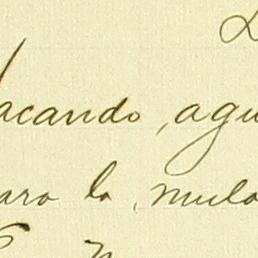 acando, agu
ara la mula